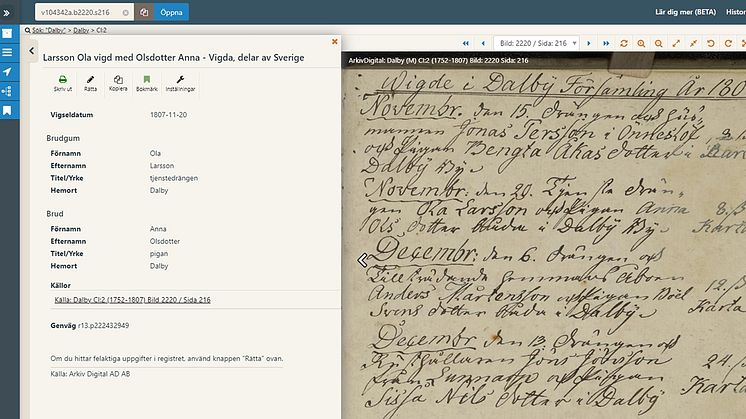 v104342a.b2220.s216
Öppna
Lär dig mer (BETA)
Histor
Sök: "Dalby" > Dalby > CI:2
Larsson Ola vigd med Olsdotter Anna - Vigda, delar av Sverige
Skriv ut
Rätta
Kopiera
Bokmärk
Inställningar
Vigseldatum 1807-11-20
Brudgum
Förnamn Ola
Efternamn Larsson
Titel/Yrke tjenstedrängen
Hemort Dalby
Brud
Förnamn Anna
Efternamn Olsdotter
Titel/Yrke pigan
Hemort Dalby
Källor
Källa: Dalby CI:2 (1752-1807) Bild 2220 / Sida 216
Genväg r13.p222432949
Om du hittar felaktiga uppgifter i registret, använd knappen "Rätta" ovan.
Källa: Arkiv Digital AD AB
Bild: 2220 / Sida: 216
ArkivDigital: Dalby (M) CI:2 (1752-1807) Bild: 2220 / Sida: 216
Wigde i Dalby Församling År 180
Novembr. den 15. Drängen och
Jonas Persson i Önneslöf
och Pigan Bengta Åkas dotter i
Dalby By
Novembr: den 20. Tjenste drän-
gen Ola Larsson och Pigan Anna
Ols dotter i Dalby By
Decembr: den 6. Drängen och
Anders Mårtensson och Pigan Boel
Svens dotter i Dalby
Karta
Decembr den 13. Drängen och
Jöns Jönsson
från och Pigan
Sissa Nils dotter i Dalby
Karta